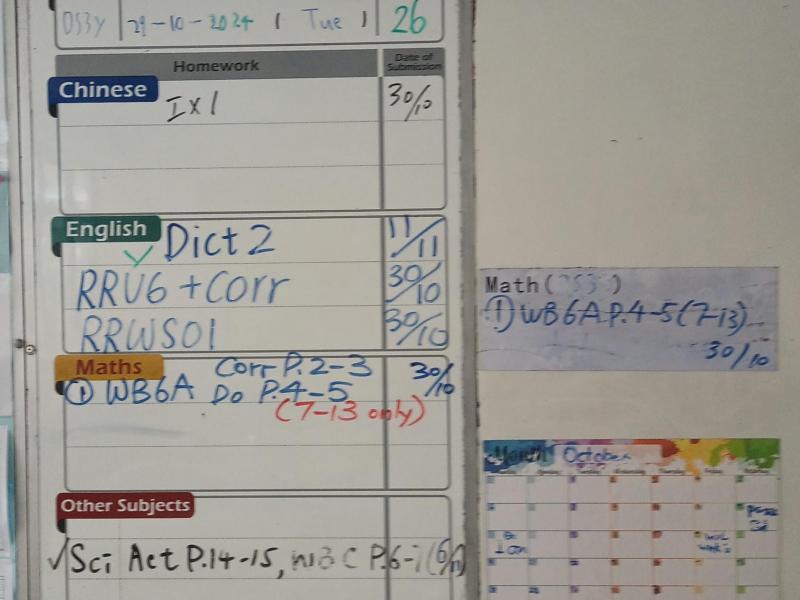 OS3Y 29-10-2024 ( Tue ) 26
Homework Date of Submission
Chinese
I x 1 30/10
English Dict 2 11/11
RRU6 + Corr 30/10
RRWS01 30/10
Maths Corr P.2-3 30/10
① WB6A Do P.4-5
(7-13 only)
Other Subjects
✓ Sci Act P.14-15,
Math(
① WB6A P.4-5(7-13)
30/10
Month October